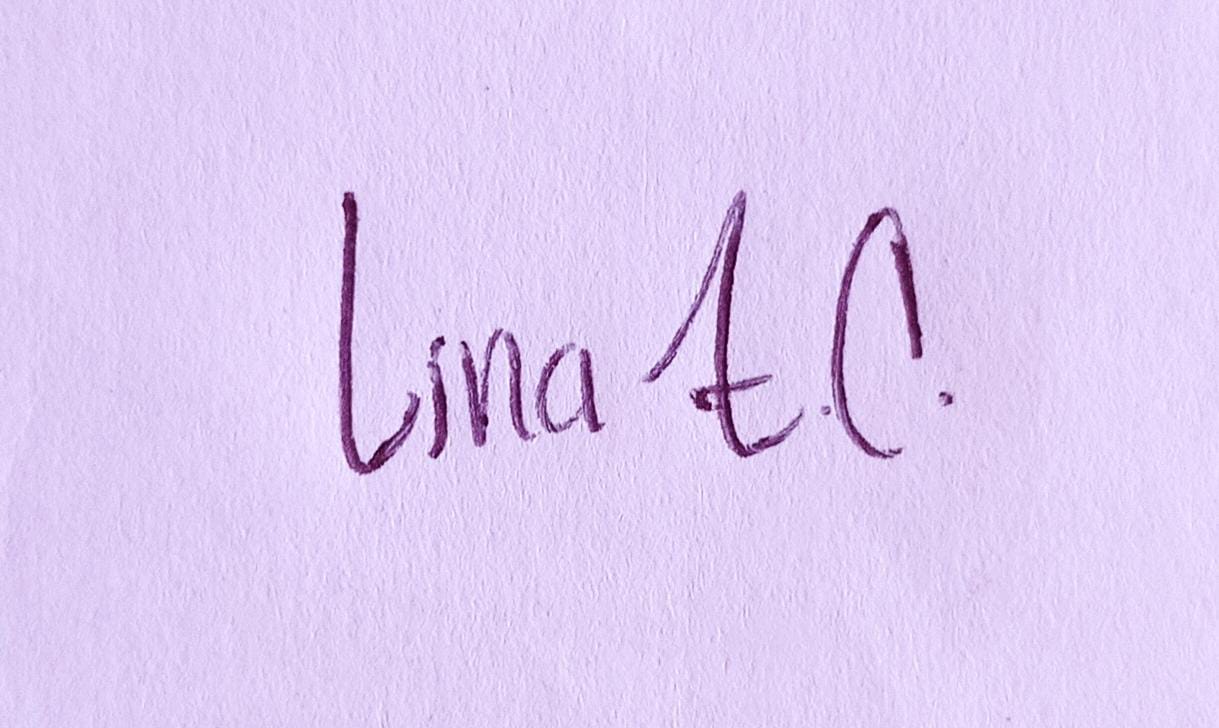 Lina A.C.